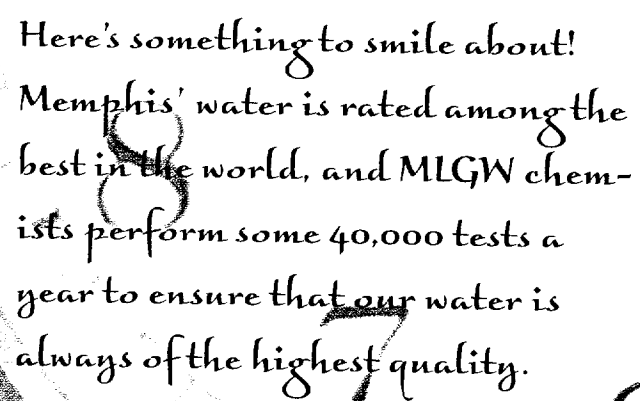 Here's something to smile about!
Memphis' water is rated among the
best in the world, and MLGW chem-
ists perform some 40,000 tests a
year to ensure that our water is
always of the highest quality.
8
7